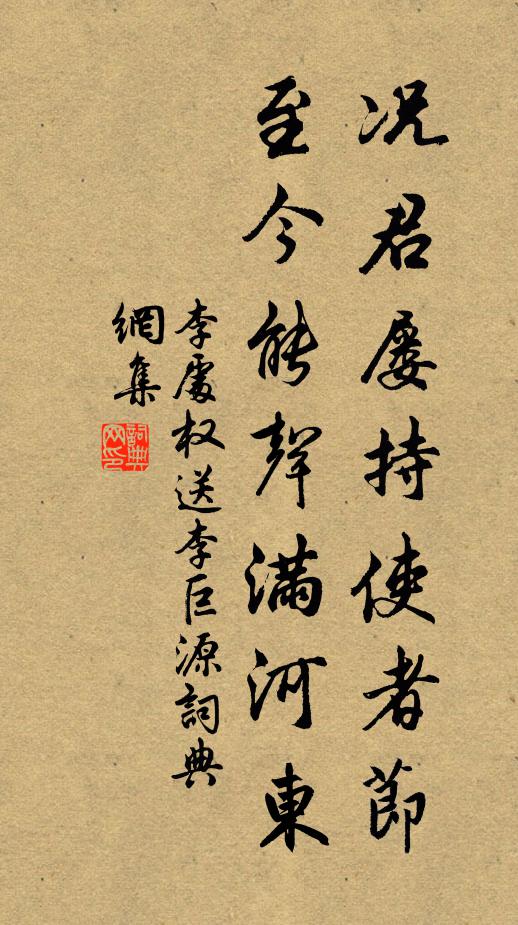 况君屡持使者節
至今能聲滿河東
李處权送李巨源詞典
網集
詞典網印